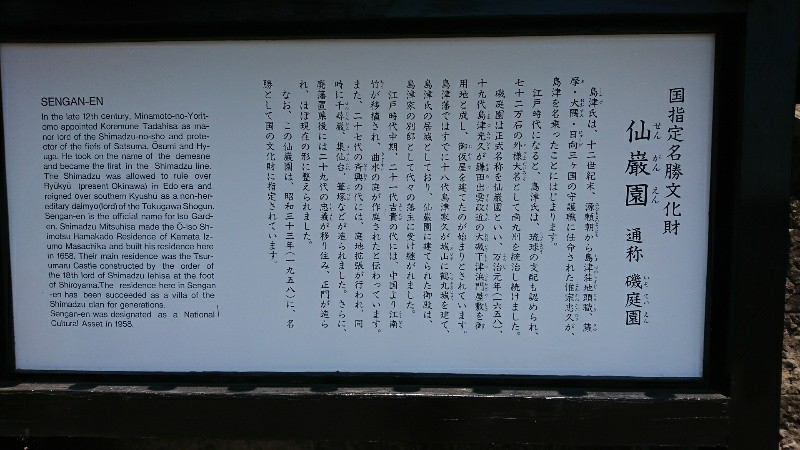 国指定名勝文化財
仙巌園 通称 磯庭園
せん がん えん
いそ てい えん
島津氏は、十二世紀末、源頼朝から島津荘地頭職、薩
摩・大隅・日向三ヶ国の守護職に任命された惟宗忠久が、
島津を名乗ったことにはじまります。
江戸時代になると、島津氏は、琉球の支配も認められ、
七十二万石の外様大名として南九州を統治し続けました。
磯庭園は正式名称を仙巌園といい、万治元年(一六五八)、
十九代島津光久が鎌田出雲政近の大磯下津浜門屋敷を御
用地と成し、御仮屋を建てたのが始まりとされています。
島津藩ではすでに十八代島津家久が城山に鶴丸城を建て、
島津氏の居城としており、仙巌園に建てられた御殿は、
島津家の別邸として代々の藩主に受け継がれました。
江戸時代中期、二十一代吉貴の代には、中国より江南
竹が移植され、曲水の庭が作庭されたと伝わっています。
また、二十七代の斉興の代には、庭地拡張が行われ、同
時に千尋巌、集仙台、筆塚などが造られました。さらに、
廃藩置県後には二十九代の忠義が移り住み、正門が造ら
れ、ほぼ現在の形に整えられました。
なお、この仙巌園は、昭和三十三年(一九五八)に、名
勝として国の文化財に指定されています。
SENGAN-EN
In the late 12th century, Minamoto-no-Yorit-
omo appointed Koremune Tadahisa as ma-
nor lord of the Shimadzu-no-sho and prote-
ctor of the fiefs of Satsuma, Ōsumi and Hy-
uga. He took on the name of the demesne
and became the first in the Shimadzu line.
The Shimadzu was allowed to rule over
Ryūkyū (present Okinawa) in Edo era and
reigned over southern Kyushu as a non-her-
editary daimyo(lord) of the Tokugawa Shogun.
Sengan-en is the official name for Iso Gard-
en. Shimadzu Mitsuhisa made the Ō-Iso Sh-
imotsu Hamakado Residence of Kamata Iz-
umo Masachika and built his residence here
in 1658. Their main residence was the Tsur-
umaru Castle constructed by the order of
the 18th lord of Shimadzu Iehisa at the foot
of Shiroyama.The residence here in Sengan
-en has been succeeded as a villa of the
Shimadzu clan for generations.
Sengan-en was designated as a National
Cultural Asset in 1958.